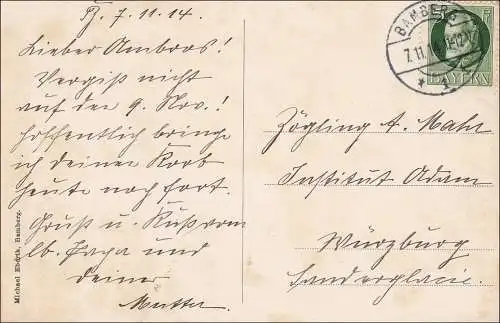 Bg. 7.11.14.
Lieber Ambros!
Vergiß nicht
auf den 9. Nov.!
Hoffentlich bringe
ich deinen Korb
heute noch fort.
Gruß u. Kuß vom
lb. Papa und
deiner
Mutter
BAMBERG
7.11.
BAYERN
Zögling A. Mahr
Institut Adam
Würzburg
Sanderglacis.
Michael Eberth, Bamberg.